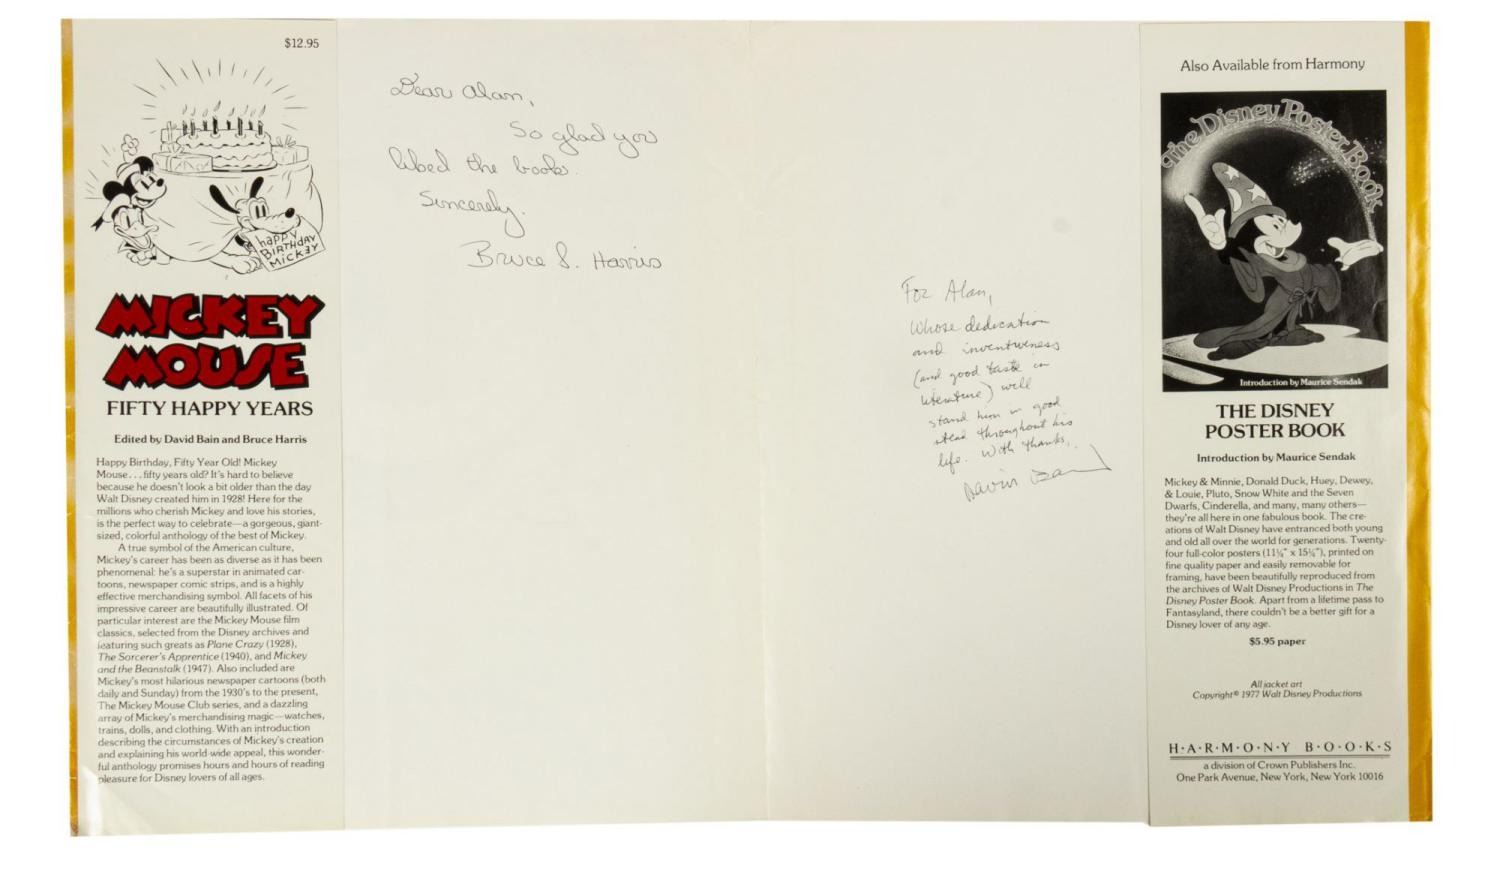 $12.95
happy
BIRTHDAY
MICKEY
MICKEY
MOUSE
FIFTY HAPPY YEARS
Edited by David Bain and Bruce Harris
Happy Birthday, Fifty Year Old! Mickey
Mouse...fifty years old? It's hard to believe
because he doesn't look a bit older than the day
Walt Disney created him in 1928! Here for the
millions who cherish Mickey and love his stories,
is the perfect way to celebrate—a gorgeous, giant-
sized, colorful anthology of the best of Mickey.
A true symbol of the American culture,
Mickey's career has been as diverse as it has been
phenomenal: he's a superstar in animated car-
toons, newspaper comic strips, and is a highly
effective merchandising symbol. All facets of his
impressive career are beautifully illustrated. Of
particular interest are the Mickey Mouse film
classics, selected from the Disney archives and
featuring such greats as Plane Crazy (1928),
The Sorcerer's Apprentice (1940), and Mickey
and the Beanstalk (1947). Also included are
Mickey's most hilarious newspaper cartoons (both
daily and Sunday) from the 1930's to the present,
The Mickey Mouse Club series, and a dazzling
array of Mickey's merchandising magic—watches,
trains, dolls, and clothing. With an introduction
describing the circumstances of Mickey's creation
and explaining his world-wide appeal, this wonder-
ful anthology promises hours and hours of reading
pleasure for Disney lovers of all ages.
Dear Alan,
So glad you
liked the book.
Sincerely,
Bruce S. Harris
For Alan,
Whose dedication
and inventiveness
(and good taste in
literature) will
stand him in good
stead throughout his
life. With thanks,
David Bain
Also Available from Harmony
The Disney Poster Book
Introduction by Maurice Sendak
THE DISNEY
POSTER BOOK
Introduction by Maurice Sendak
Mickey & Minnie, Donald Duck, Huey, Dewey,
& Louie, Pluto, Snow White and the Seven
Dwarfs, Cinderella, and many, many others—
they're all here in one fabulous book. The cre-
ations of Walt Disney have entranced both young
and old all over the world for generations. Twenty-
four full-color posters (11¼" x 15¼"), printed on
fine quality paper and easily removable for
framing, have been beautifully reproduced from
the archives of Walt Disney Productions in The
Disney Poster Book. Apart from a lifetime pass to
Fantasyland, there couldn't be a better gift for a
Disney lover of any age.
$5.95 paper
All jacket art
Copyright © 1977 Walt Disney Productions
H·A·R·M·O·N·Y B·O·O·K·S
a division of Crown Publishers Inc.
One Park Avenue, New York, New York 10016